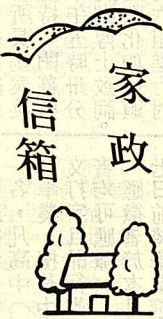 家政
信箱